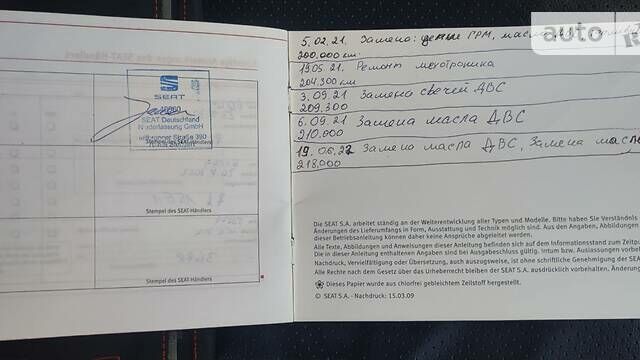 SEAT
SEAT Deutschland
Niederlassung GmbH
Stempel des SEAT-Händlers
Stempel des SEAT-Händlers
Stempel des SEAT-Händlers
5.02.21. Замена: цепи ГРМ, масла
200.000 км.
19.05.21. Ремонт мехотроника
204.300 км
3.09.21 Замена свечей ДВС
209.300
6.09.21 Замена масла ДВС
210.000
19.06.22 Замена масла ДВС, Замена масла
218.000
Die SEAT S.A. arbeitet ständig an der Weiterentwicklung aller Typen und Modelle. Bitte haben Sie Verständnis
Änderungen des Lieferumfangs in Form, Ausstattung und Technik möglich sind. Aus den Angaben, Abbildungen
dieser Betriebsanleitung können daher keine Ansprüche abgeleitet werden.
Alle Texte, Abbildungen und Anweisungen dieser Anleitung befinden sich auf dem Informationsstand zum Zeitpu
Die in dieser Anleitung enthaltenen Angaben sind bei Ausgabeschluss gültig. Irrtum bzw. Auslassungen vorbe
Nachdruck, Vervielfältigung oder Übersetzung, auch auszugsweise, ist ohne schriftliche Genehmigung der SEA
Alle Rechte nach dem Gesetz über das Urheberrecht bleiben der SEAT S.A. ausdrücklich vorbehalten. Änderung
Dieses Papier wurde aus chlorfrei gebleichtem Zellstoff hergestellt.
© SEAT S.A. - Nachdruck: 15.03.09
auto